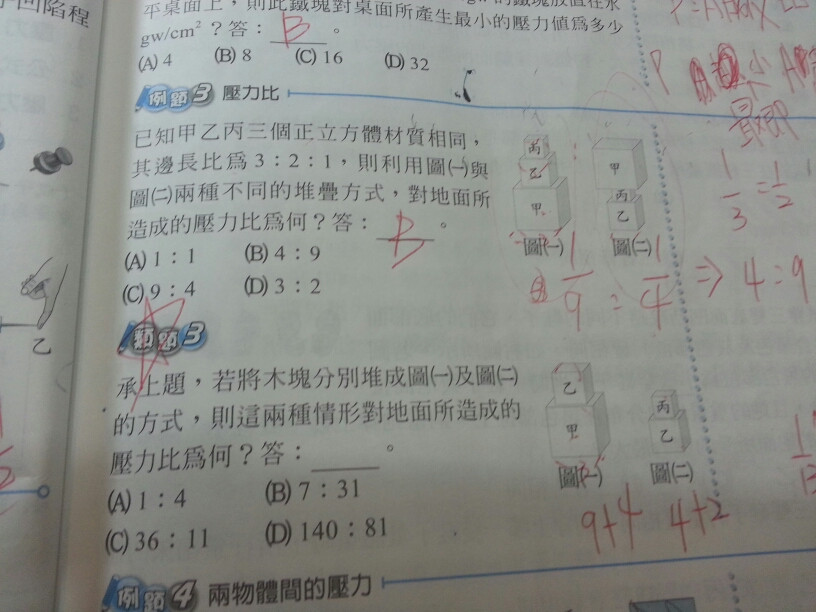 回陷程
平桌面上,則此鐵塊對桌面所產生最小的壓力值為多少
gw/cm²?答: B 。
(A) 4 (B) 8 (C) 16 (D) 32
例題3 壓力比
已知甲乙丙三個正立方體材質相同,
其邊長比為3:2:1,則利用圖㈠與
圖㈡兩種不同的堆疊方式,對地面所
造成的壓力比為何?答: B 。
(A) 1:1 (B) 4:9
(C) 9:4 (D) 3:2
丙
乙
甲
圖㈠
甲
丙
乙
圖㈡
1/9 : 1/4 ⇒ 4:9
1/3 = 1/2
類題3
承上題,若將木塊分別堆成圖㈠及圖㈡
的方式,則這兩種情形對地面所造成的
壓力比為何?答: 。
(A) 1:4 (B) 7:31
(C) 36:11 (D) 140:81
乙
甲
圖㈠
丙
乙
圖㈡
9+4 4+2
例題4 兩物體間的壓力
乙